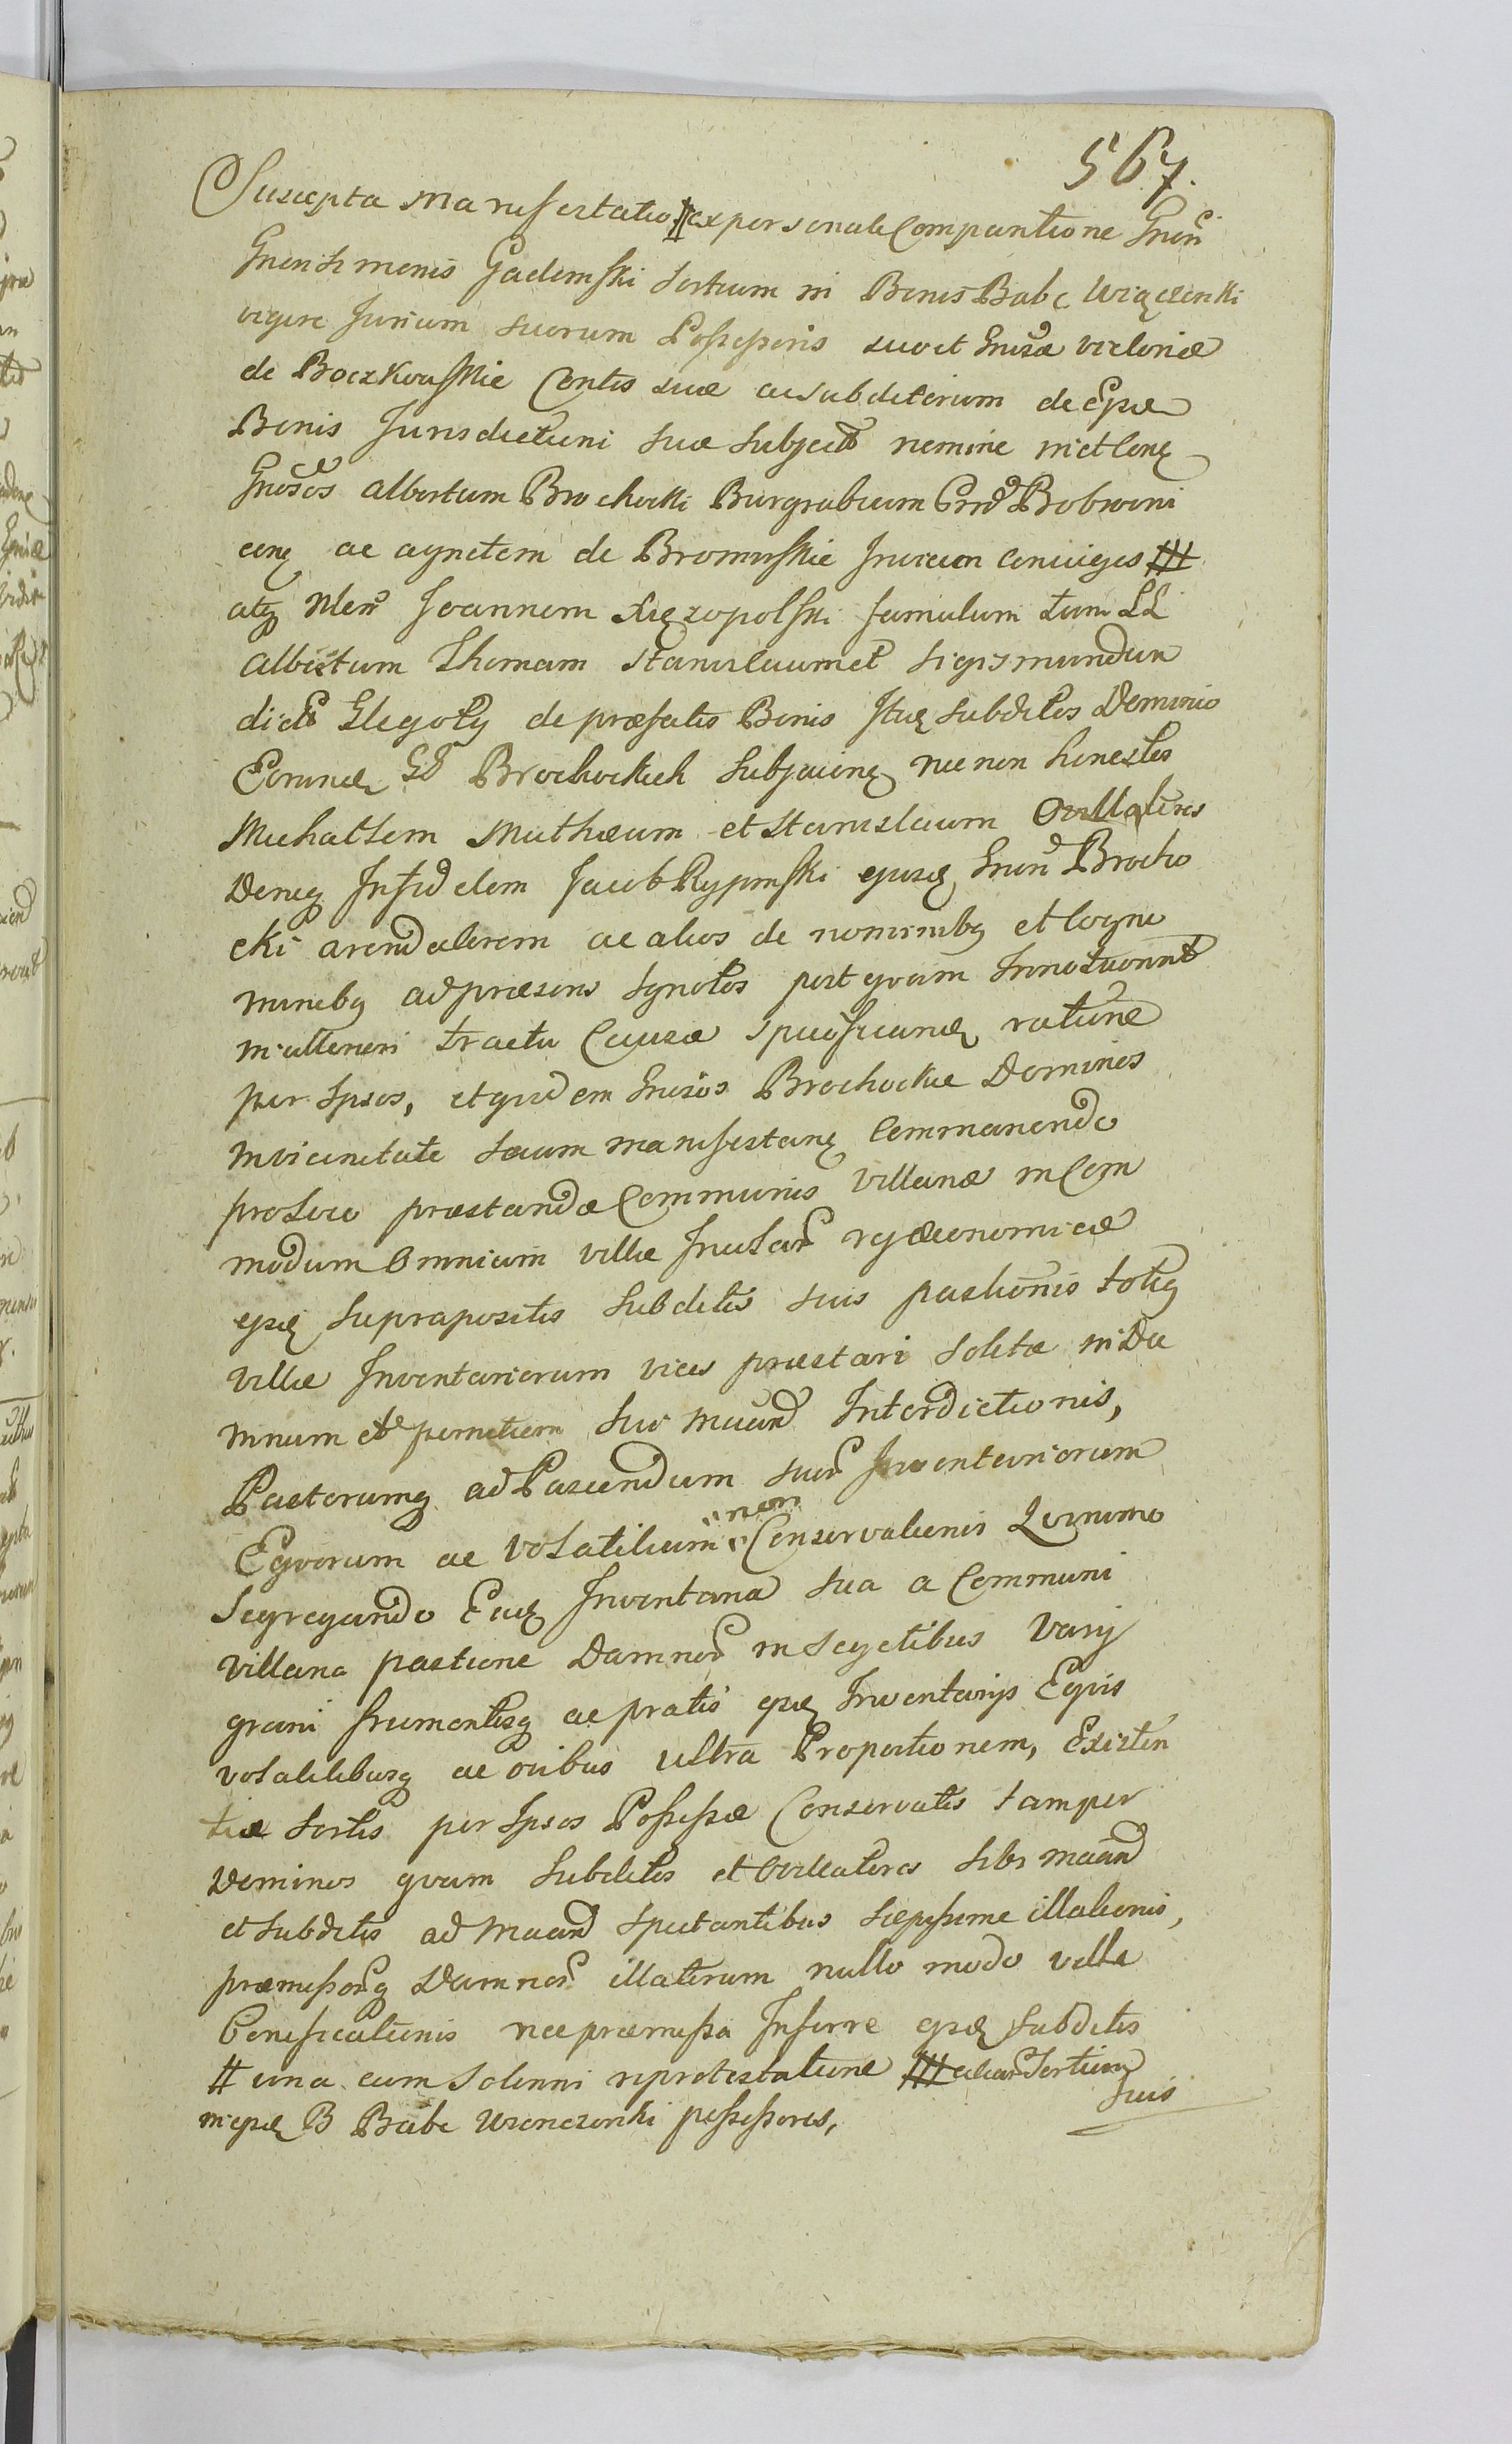 567.
Suscepta Manifestatio # ex personali Comparitione Gnen
Gnerosi monis Gademski sortium in Bonis Babe Więczenki
vigore Jurium suorum Possessoris suo et Gnosæ victoriæ
de Boczkowskie Contis suæ ac subditorum de Eisdæ
Bonis Jurisdictioni suæ subject nomine in et Conq
Gnosos Albertum Brochocki Burgrabium Bobrowni
cenq ac agnetem de Bromirskie Invicem coniuges ##
atq Nlem Joannem Xięzopolski famulum tum LL
Albertum Thomam Stanislaumet Sigismundum
dict Glegoły de præfatis Bonis Ituq subditos Dominio
Eorund GG Brochockich subjacenq necnon honestos
Michalem Mathæum et Stanislaum Ovillatores
Deniq Infidelem Jacob Rypinski ejusd Gnen Brocho
cki arendatorem ac alios de nominibq et Cogno
minibq ad præsens Ignotos postqvam Innotuorint
in alteriori tractu Causæ spccificandq ratione
per Ipsos, et quidem Gnosos Brochockie Dominos
in vicinitate secum manifestanq commanendo
pro suo præstandæ Communis Villanæ in Com
modum Omnium villæ Incolar reg œconomicæ
ejsd suprapositis subditis suis pastionis totiq
villæ Inventariorum vices præstari solitæ in Da
mnum et pernitiem sui Maand Interdictionis,
Pastorumq ad Pascendum suor Inventariorum
Eqvorum ac volatilium "non" Conservationis Qvinimo
Segregando Ead Inventaria sua a Communi
villana pastione Damnor in segetibus varij
grani frumentisq ac pratis ejsd Inventarijs Eqvis
volatilibusq ac ovibus ultra Proportionem, Existen
tiæ sortis per Ipsos Possessæ Conservatis tam per
Dominos qvam Subditos et Ovillatores sibi maand
et subditis ad Maand spectantibus sæpissime illationis,
præmissorq Damnor illatorum nullo modo velle
Bonificationis nec præmissa Inferre ejsd subditis
# una cum Solenni reprotestatione ## aliar sortium suis
in ejsd B Babe Wienczenki possessores,